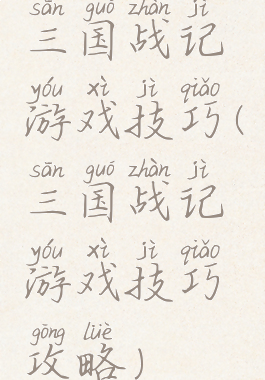 sān guó zhàn jì
三国战记
yóu xì jì qiǎo
游戏技巧(
sān guó zhàn jì
三国战记
yóu xì jì qiǎo
游戏技巧
gōng lüè
攻略)